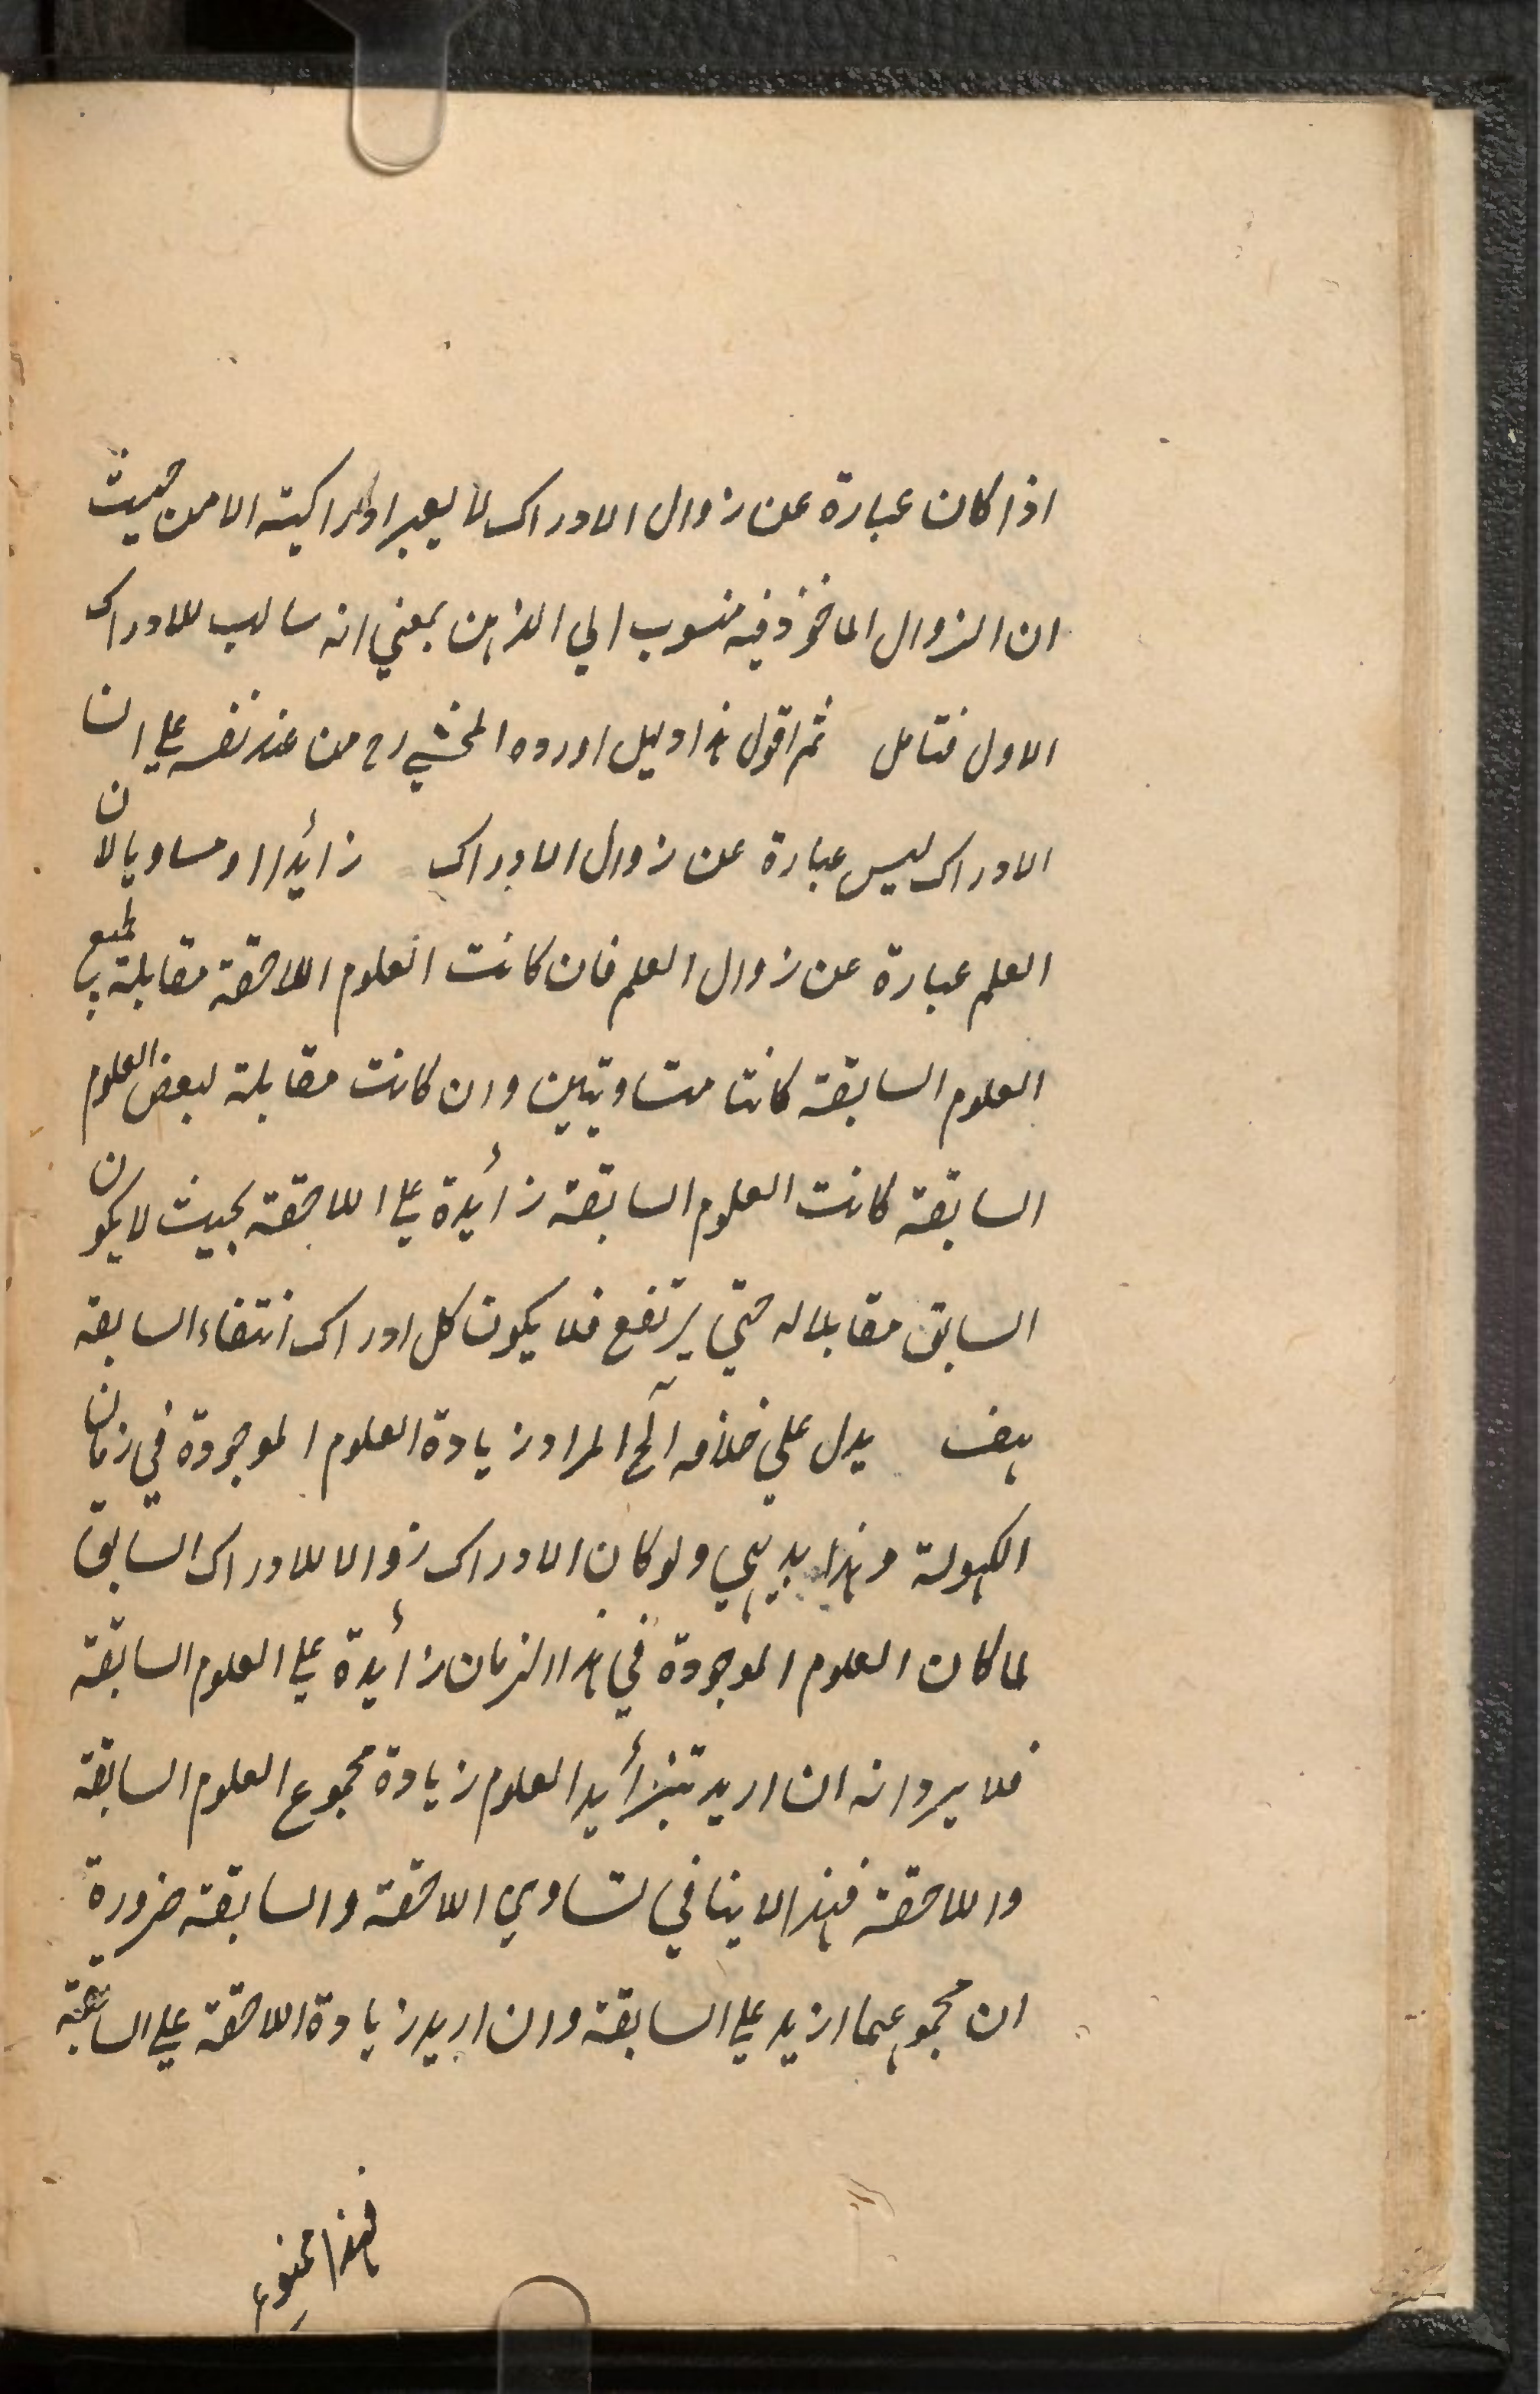 اذا كان عبارة عن زوال الادراك لا يعبر ادراكيته الا من حيث
ان الزوال الماخوذ فيه منسوب الي الذهن بمعني انه سالب للادراك
الاول فتامل ثم اقول هذا دليل اورده المحشي رح من عند نفسه علي ان
الادراك ليس عبارة عن زوال الادراك زائدا او مساويا لان
العلم عبارة عن زوال العلم فان كانت العلوم اللاحقة مقابلة لجميع
العلوم السابقة كانتا متساويتين وان كانت مقابلة لبعض العلوم
السابقة كانت العلوم السابقة زائدة علي اللاحقة بحيث لا يكون
السابق مقابلا له حتي يرتفع فلا يكون كل ادراك انتفاء السابقه
هف يدل علي خلافه الخ المراد زيادة العلوم الموجودة في زمان
الكهولة وهذا بديهي ولو كان الادراك زوالا للادراك السابق
لما كان العلوم الموجودة في هذا الزمان زائدة علي العلوم السابقة
فلا يرد انه ان اريد بتزأيد العلوم زيادة مجموع العلوم السابقة
واللاحقة فهذا لا ينافي تساوي اللاحقة والسابقة ضرورة
ان مجموعهما ازيد علي السابقة وان اريد زيادة اللاحقة علي السابقة
فهذا ممنوع